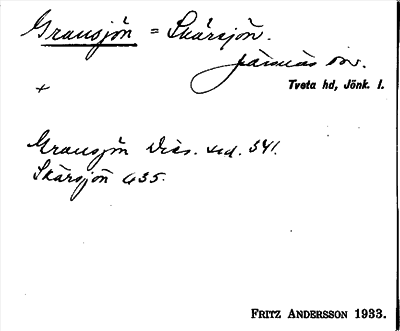 Gransjön = Skärsjön.
Järsnäs sn.
Tveta hd, Jönk. l.
+
Gransjön Dies. sid. 541.
Skärsjön 635.
FRITZ ANDERSSON 1933.